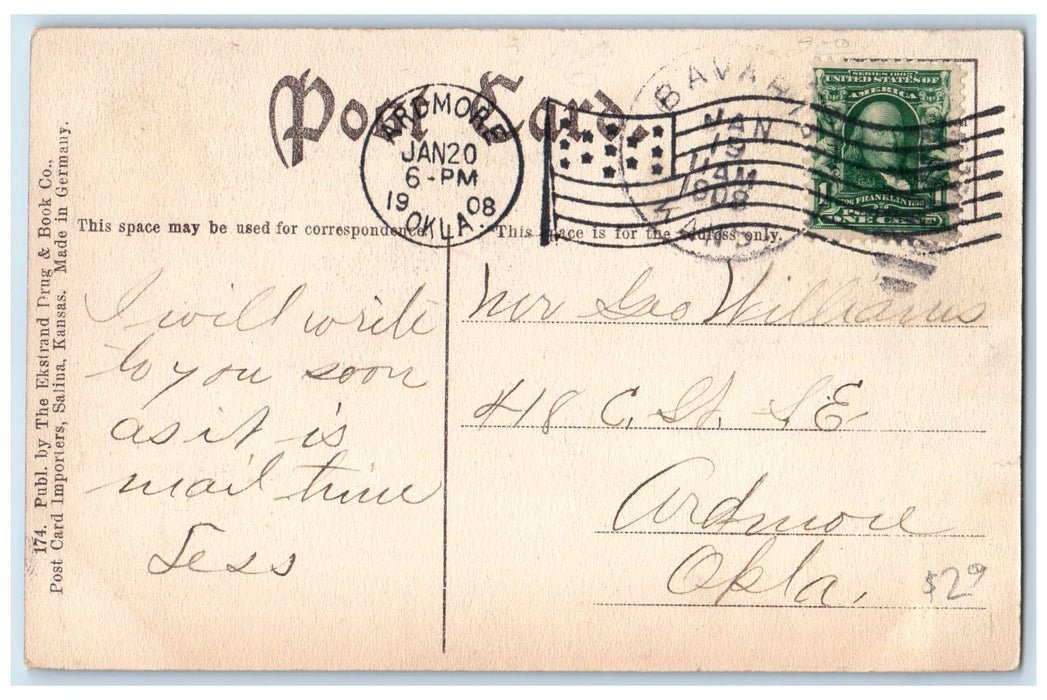 Post Card.
ARDMORE
JAN 20
6-PM
1908
OKLA.
BAVARIA
JAN
AM
1908
KANS
SERIES 1902
UNITED STATES OF
AMERICA
FRANKLIN
ONE CENT
This space may be used for correspondence.
This space is for the address only.
174. Publ. by The Ekstrand Drug & Book Co.,
Post Card Importers, Salina, Kansas. Made in Germany.
I will write
to you soon
as it is
mail time
Jess
Mr Geo Williams
418 C. St. S E
Ardmore
Okla.
$2 00